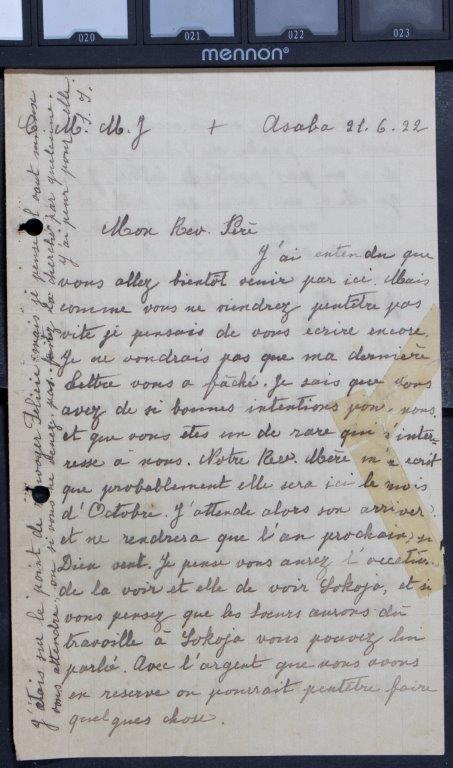 020 021 022 023
mennon®
M. M. J + Asaba 21.6.22
Mon Rev. Père
J'ai entendu que
vous allez bientôt venir par ici. Mais
comme vous ne viendrez peutetre pas
vite je pensais de vous ecrire encore.
Je ne voudrais pas que ma dernière
Lettre vous a fâché. Je sais que vous
avez de si bonnes intentions pour nous
et que vous êtes un de rare qui s'inter-
resse à nous. Notre Rev. Mère m'a ecrit
que probablement elle sera ici le mois
d'Octobre. J'attende alors son arriver
et ne rendrera que l'an prochain, si
Dieu veut. Je pense vous aurez l'occation
de la voir et elle de voir Lokoja, et si
vous pensez que les Soeurs aurons du
travaille à Lokoja vous pouvez lui
parlé. Avec l'argent que nous avons
en reserve on pourrait peutêtre faire
quelques chose.
J'étais sur le point de renvoyer Felicie mais je pense il vaut mieux
vous attendre, ou si vous ne venez pas, faitez la cherché par quelqu'une.
J'ai peur pour elle.